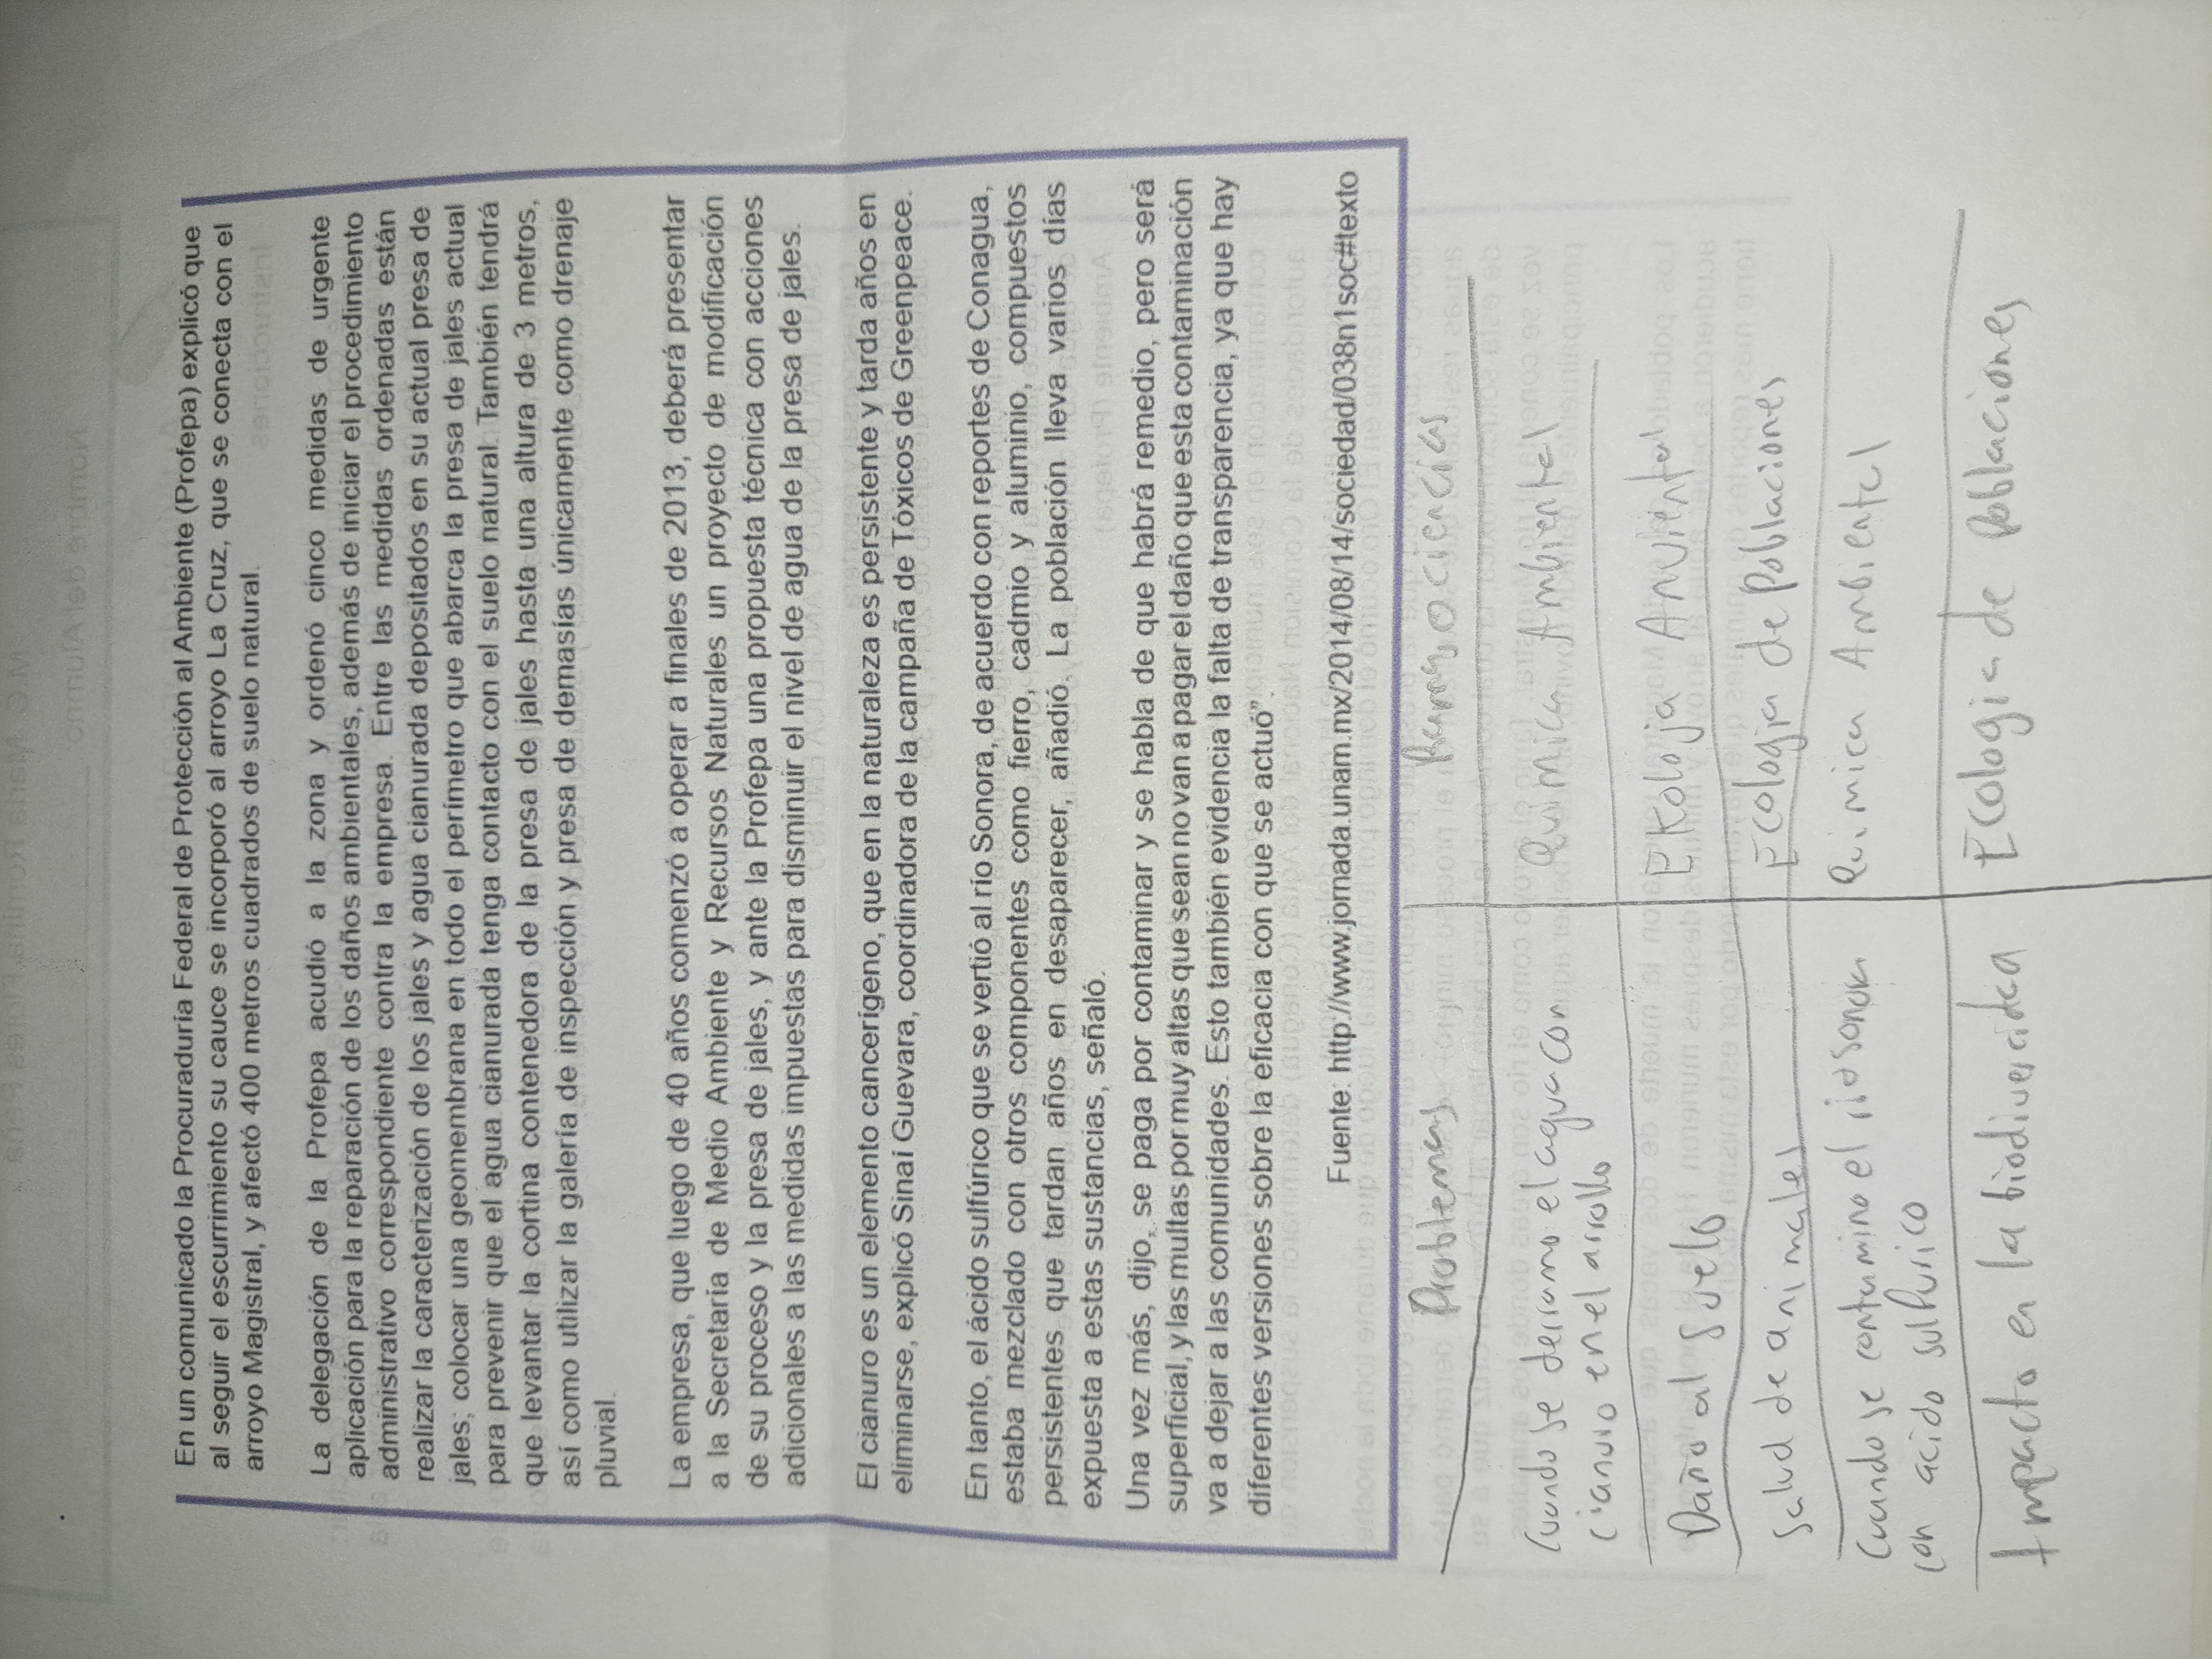 En un comunicado la Procuraduría Federal de Protección al Ambiente (Profepa) explicó que
al seguir el escurrimiento su cauce se incorporó al arroyo La Cruz, que se conecta con el
arroyo Magistral, y afectó 400 metros cuadrados de suelo natural.
La delegación de la Profepa acudió a la zona y ordenó cinco medidas de urgente
aplicación para la reparación de los daños ambientales, además de iniciar el procedimiento
administrativo correspondiente contra la empresa. Entre las medidas ordenadas están
realizar la caracterización de los jales y agua cianurada depositados en su actual presa de
jales; colocar una geomembrana en todo el perímetro que abarca la presa de jales actual
para prevenir que el agua cianurada tenga contacto con el suelo natural. También tendrá
que levantar la cortina contenedora de la presa de jales hasta una altura de 3 metros,
así como utilizar la galería de inspección y presa de demasías únicamente como drenaje
pluvial.
La empresa, que luego de 40 años comenzó a operar a finales de 2013, deberá presentar
a la Secretaría de Medio Ambiente y Recursos Naturales un proyecto de modificación
de su proceso y la presa de jales, y ante la Profepa una propuesta técnica con acciones
adicionales a las medidas impuestas para disminuir el nivel de agua de la presa de jales.
El cianuro es un elemento cancerígeno, que en la naturaleza es persistente y tarda años en
eliminarse, explicó Sinaí Guevara, coordinadora de la campaña de Tóxicos de Greenpeace.
En tanto, el ácido sulfúrico que se vertió al río Sonora, de acuerdo con reportes de Conagua,
estaba mezclado con otros componentes como fierro, cadmio y aluminio, compuestos
persistentes que tardan años en desaparecer, añadió. La población lleva varios días
expuesta a estas sustancias, señaló.
Una vez más, dijo, se paga por contaminar y se habla de que habrá remedio, pero será
superficial, y las multas por muy altas que sean no van a pagar el daño que esta contaminación
va a dejar a las comunidades. Esto también evidencia la falta de transparencia, ya que hay
diferentes versiones sobre la eficacia con que se actuó".
Fuente: http://www.jornada.unam.mx/2014/08/14/sociedad/038n1soc#texto
Problemas Ramas o ciencias
Cuando se derramo el agua con Quimica Ambiental
cianuro en el arrollo
Daño al suelo Ekoloja Amviental
salud de animales Ecologia de poblaciones
Cuando se contamino el rio sonora Quimica Ambiental
con acido sulfurico
Impacto en la biodivercidea Ecologia de poblaciones